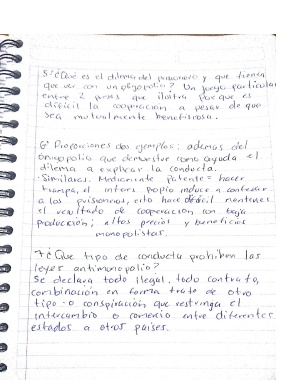 5-¿Qué es el dilema del prisionero y que tienen
que ver con un oligopolio? Un juego particular
entre 2 presos que ilustra porque es
dificil la cooperacion a pesar de que
sea mutualmente beneficiosa.
6- Proporciones dos ejemplos; ademas del
oligopolio que demuestre como ayuda el
dilema a explicar la conducta.
- Similares. hacer
trampa, el interes propio induce a confesar
a los prisioneros, esto hace dificil mantener
el resultado de cooperacion con baja
produccion; altos precios y beneficios
monopolistas.
7¿Que tipo de conducta prohiben las
leyes antimonopolio?
Se declara todo ilegal, todo contrato,
combinación en forma trate de otro
tipo - o conspiración que restringa el
intercambio o comercio entre diferentes
estados a otros paises.